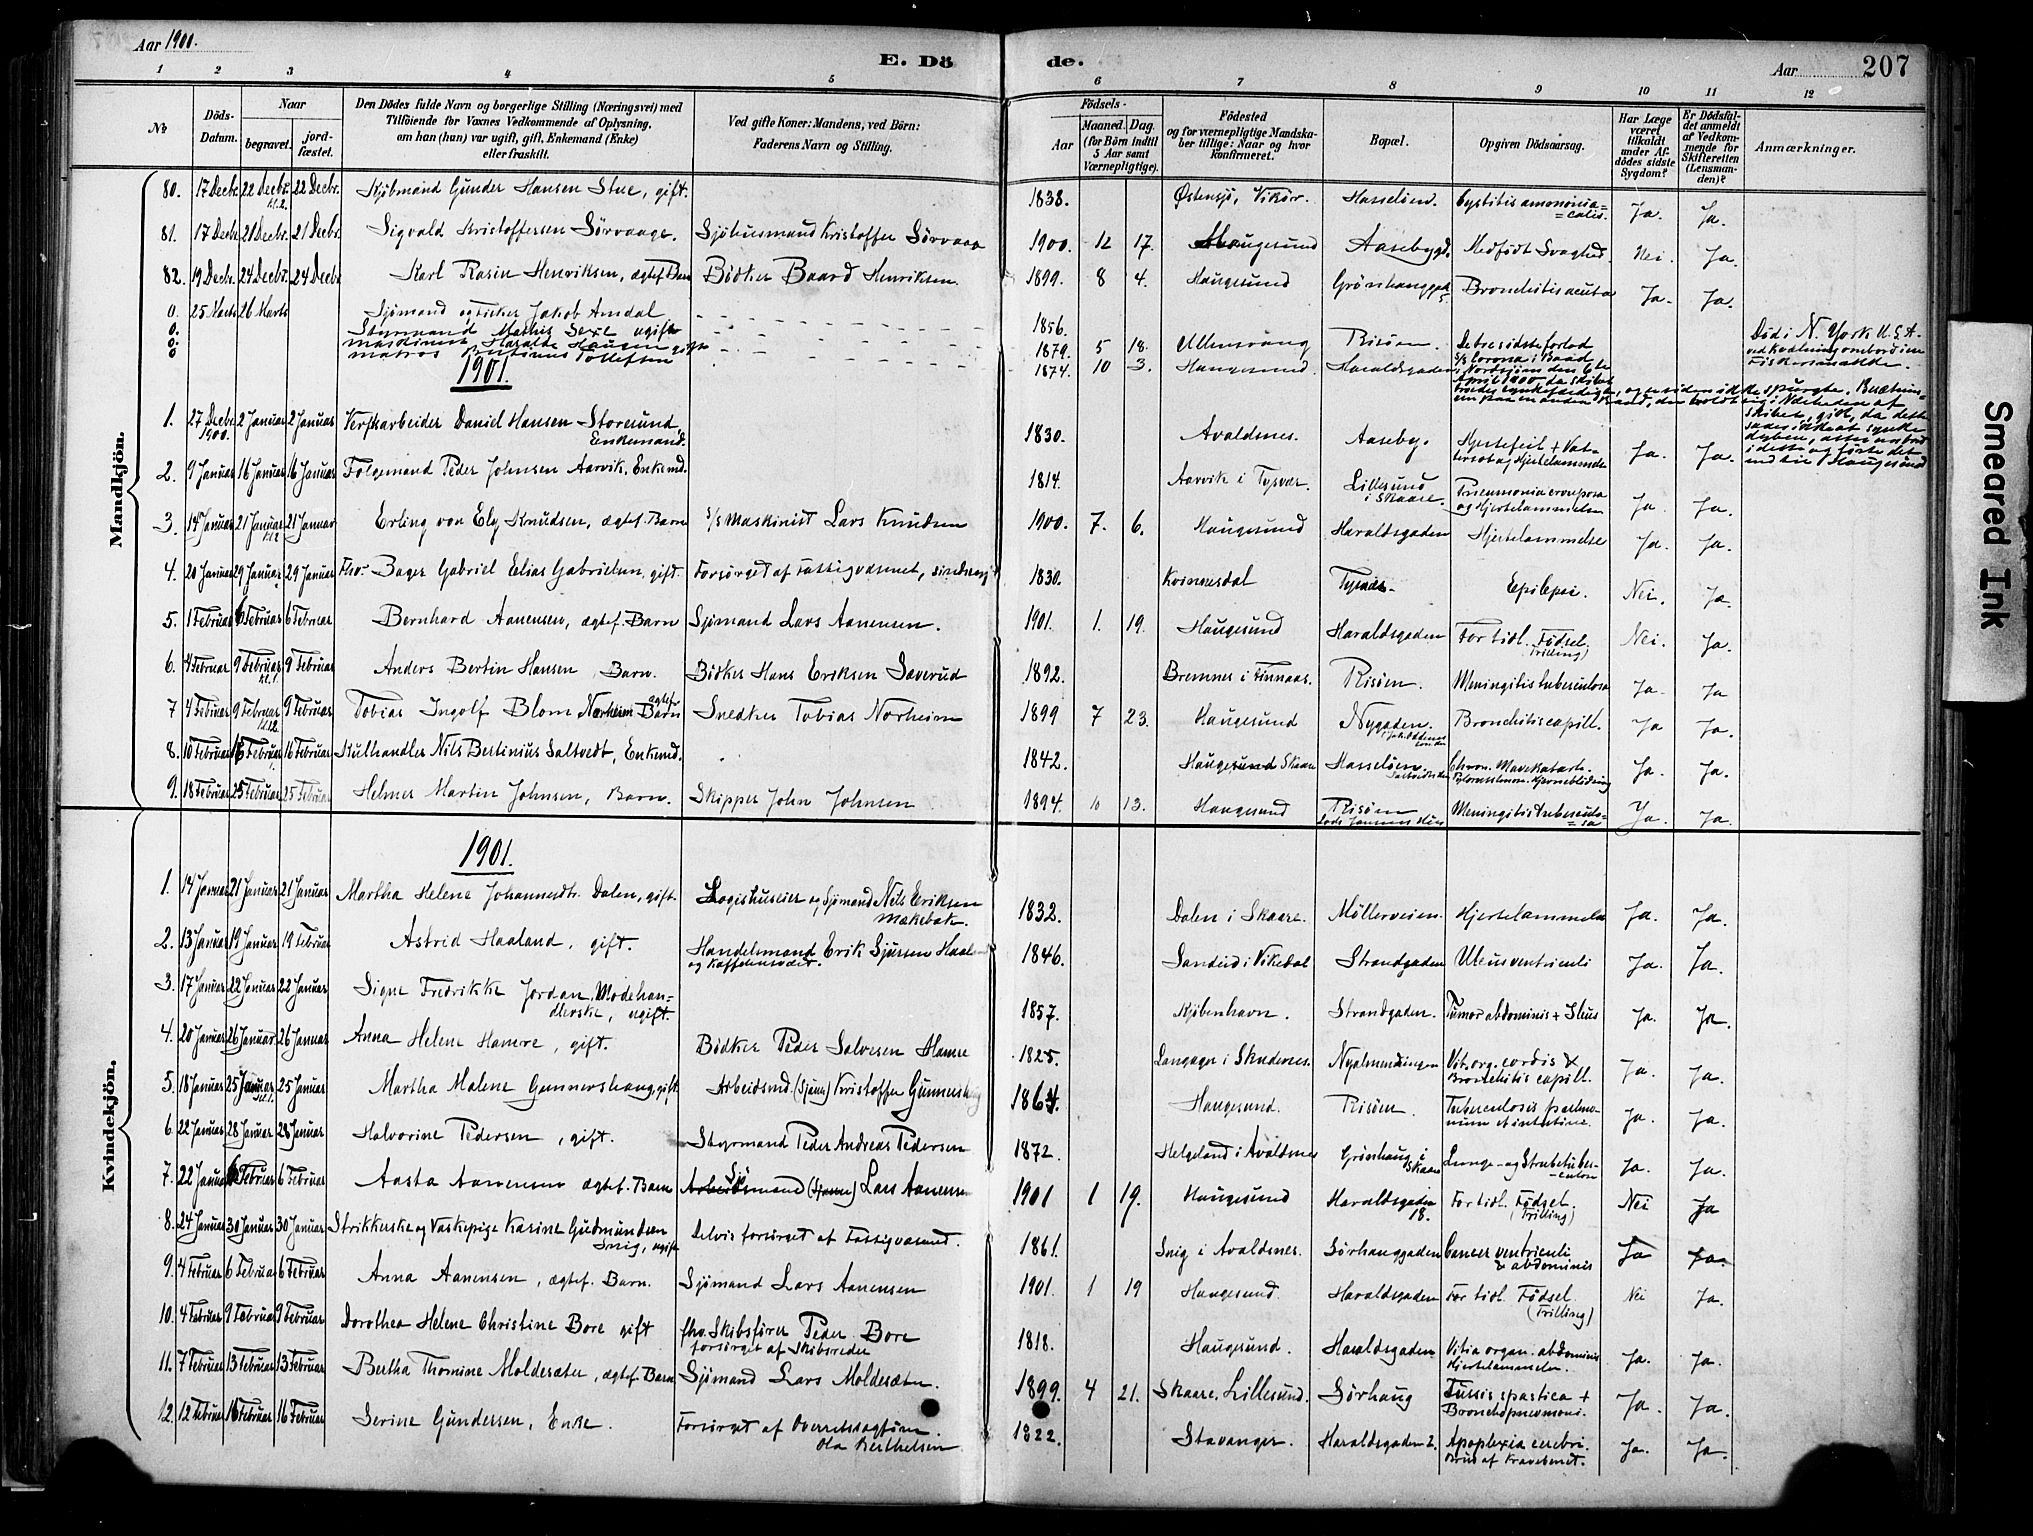 Aar 1901.
E. Dö de.
Aar 207
1 2 3 4 5 6 7 8 9 10 11 12
No
Döds-Datum.
Naar begravet. jordfæstet.
Den Dödes fulde Navn og borgerlige Stilling (Næringsvei) med Tilföiende for Voxnes Vedkommende af Oplysning, om han (hun) var ugift, gift, Enkemand (Enke) eller fraskilt.
Ved gifte Koner: Mandens, ved Börn: Faderens Navn og Stilling.
Födsels- Aar Maaned. Dag. (for Börn indtil 5 Aar samt Værnepligtige).
Födested og for værnepligtige Mandskaber tillige: Naar og hvor konfirmeret.
Bopæl.
Opgiven Dödsaarsag.
Har Læge været tilkaldt under Afdödes sidste Sygdom?
Er Dödsfaldet anmeldt af Vedkommende for Skifteretten (Lensmanden)?
Anmærkninger.
Mandkjön.
80. 17 Decbr. 22 Decbr. kl. 2. 22 Decbr. Kjöbmand Gunder Hansen Stue, gift. 1838. Östensjö, Vikör. Hasselöen. Cystitis ammoniacalis. Ja. Ja.
81. 17 Decbr. 21 Decbr. 21 Decbr. Sigvald Kristoffersen Sörvaage. Sjöhusmand Kristoffer Sörvaag 1900. 12 17. Haugesund Aasebygd. Medfödt Svaghed. Nei. Ja.
82. 19 Decbr. 24 Decbr. 24 Decbr. Karl Rasin Henriksen, ægtef. Barn Bödker Baard Henriksen. 1899. 8 4. Haugesund Grönhauggad. Bronchitis acuta Ja. Ja.
0. 25 Marts 26 Marts Sjömand og fisker Jakob Amdal 1856. Död i N. York U.S.A. ved Kvælning ombord i en Fiskersmakke.
0. Styrmand Mathis Sexe ugift 1879. 5 18. Ullensvang Risöen. De tre sidste forlod
0. maskinist Haralds Hansen gift 1874. 10 3. Haugesund. Haraldsgaden S/S Corona i Baad i Nordsjöen den 6te April 1900, da skibet
0 matros Bertinus Tollefsen
1901.
1. 27 Decbr. 1900. 2 Januar 2 Januar Verftarbeider Daniel Hansen Storesund, Enkemand. 1830. Avaldsnes. Aaseby. Hjertefeil + Vattersot og Hjertelammelse Ja. Ja.
2. 9 Januar 16 Januar 16 Januar Folgemand Peder Johnsen Aarvik, Enkemd. 1814. Aarvik i Tysvær. Lillesund i Skaare. Pneumonia crouposa og Hjertelammelse Ja. Ja.
3. 14 Januar 21 Januar kl 2 21 Januar Erling von Ely Knudsen, ægtef. Barn S/S Maskinist Lars Knudsen 1900. 7. 6. Haugesund Haraldsgaden Hjertelammelse Ja. Ja.
4. 20 Januar 29 Januar 29 Januar Fhv. Bager Gabriel Elias Gabrielsen, gift. Forsörget af Fattigvæsenet, sindssyg 1830. Kvinnesdal Tysvær. Epilepsi. Nei. Ja.
5. 1 Februar 6 Februar 6 Februar Bernhard Aanensen, ægtef. Barn Sjömand Lars Aanensen. 1901. 1. 19. Haugesund Haraldsgaden For tidl. Födsel. (Trilling) Nei. Ja.
6. 4 Februar 9 Februar kl. 1. 9 Februar Anders Bertin Hansen Barn. Bödker Hans Eriksen Saverud 1892. Bremnes i Finnaas. Risöen. Meningitis tuberculosa Ja. Ja
7 4 Februar 9 Februar kl 12 9 Februar Tobias Ingolf Blom Norheim ægtef Barn Snedker Tobias Norheim 1899 7 23. Haugesund Nygaden. Bronchitis capill. Ja Ja.
8. 10 Februar 16 Februar 16 Februar Kulhandler Nils Bertinius Saltvedt, Enkemd. 1842. Haugesund Skaare Hasselöen. Chron. Mavekatarrh. Ja. Ja.
9. 18 Februar 25 Februar 25 Februar Helmer Martin Johnsen, Barn. Skipper John Johnsen 1894. 10 13. Haugesund Risöen Meningitis tuberculosa Ja. Ja.
Kvindekjön.
1901.
1. 14 Januar 21 Januar 21 Januar Martha Helene Johannesdtr. Dalen, gift. Logishuseier og Sjömand Nils Eriksen Makebak. 1832. Dalen i Skaare. Möllerveien. Hjertelammelse Ja. Ja.
2. 13 Januar 19 Januar 19 Februar Astrid Haaland, gift. Handelsmand Erik Sjursen Haaland 1846. Sandeid i Vikedal Strandgaden Ulcus ventriculi Ja. Ja.
3. 17 Januar 22 Januar 22 Januar Signe Fredrikke Jordan, Modehandlerske, ugift. 1857. Kjöbenhavn. Strandgaden. Tumor abdominis + Ileus Ja. Ja.
4. 20 Januar 26 Januar 26 Januar Anna Helene Hamre, gift. Bödker Peder Salvesen Hamre 1825. Langager i Skudenes. Nyalmendingen Vit. org. cordis & Bronchitis capill. Ja. Ja.
5. 18 Januar 25 Januar kl. 1. 25 Januar Martha Malene Gunnershaug, gift Arbeidsmd. (Sjauer) Kristoffer Gunnershaug 1864. Haugesund. Risöen. Tuberculosis pulmonum et intestine. Ja. Ja.
6 22 Januar 28 Januar 28 Januar Halvorine Pedersen, gift. Styrmand Peder Andreas Pedersen 1872. Helgeland i Avaldsnes Grönhaug i Skaare Lunge- og Strubetuberculose Ja. Ja.
7. 22 Januar 6 Februar 6 Februar Aasta Aanensen ægtef. Barn Arbeidsmand Sjö (Sjauer) Lars Aanensen 1901 1 19. Haugesund Haraldsgaden 18. For tidl. Födsel. (Trilling) Nei Ja
8. 24 Januar 30 Januar 30 Januar Strikkerske og Vaskepige Karine Gudmundsen Snig, ugift Delvis forsörget af Fattigvæsenet. 1861. Snig i Avaldsnes. Sörhauggaden Cancer ventriculi & abdominis Ja Ja.
9. 4 Februar 6 Februar 6 Februar Anna Aanensen, ægtef. Barn. Sjömand Lars Aanensen 1901. 1 19 Haugesund. Haraldsgaden For tidl. Födsel (Trilling) Nei Ja.
10. 4 Februar 9 Februar 9 Februar Dorothea Helene Christine Bore gift fhv. Skibsförer Peder Bore forsörget af Skibsreder 1818. Haugesund. Haraldsgaden Vitia organ. abdominis Hjertelammelse. Ja. Ja.
11. 7 Februar 13 Februar 13 Februar Bertha Thomine Moldesæter, ægtef. Barn Sjömand Lars Moldesæter. 1899. 4 21. Skaare, Lillesund. Sörhaug Tussis spastica + Bronchopneumoni. Ja. Ja.
12. 12 Februar 16 Februar 16 Februar Serine Gundersen, Enke. Forsörget af Overretssagförer Ola Berthelsen 1822. Stavanger. Haraldsgaden 2. Apoplexia cerebri. Brud af Kravebenet. Ja. Ja.
Smeared Ink